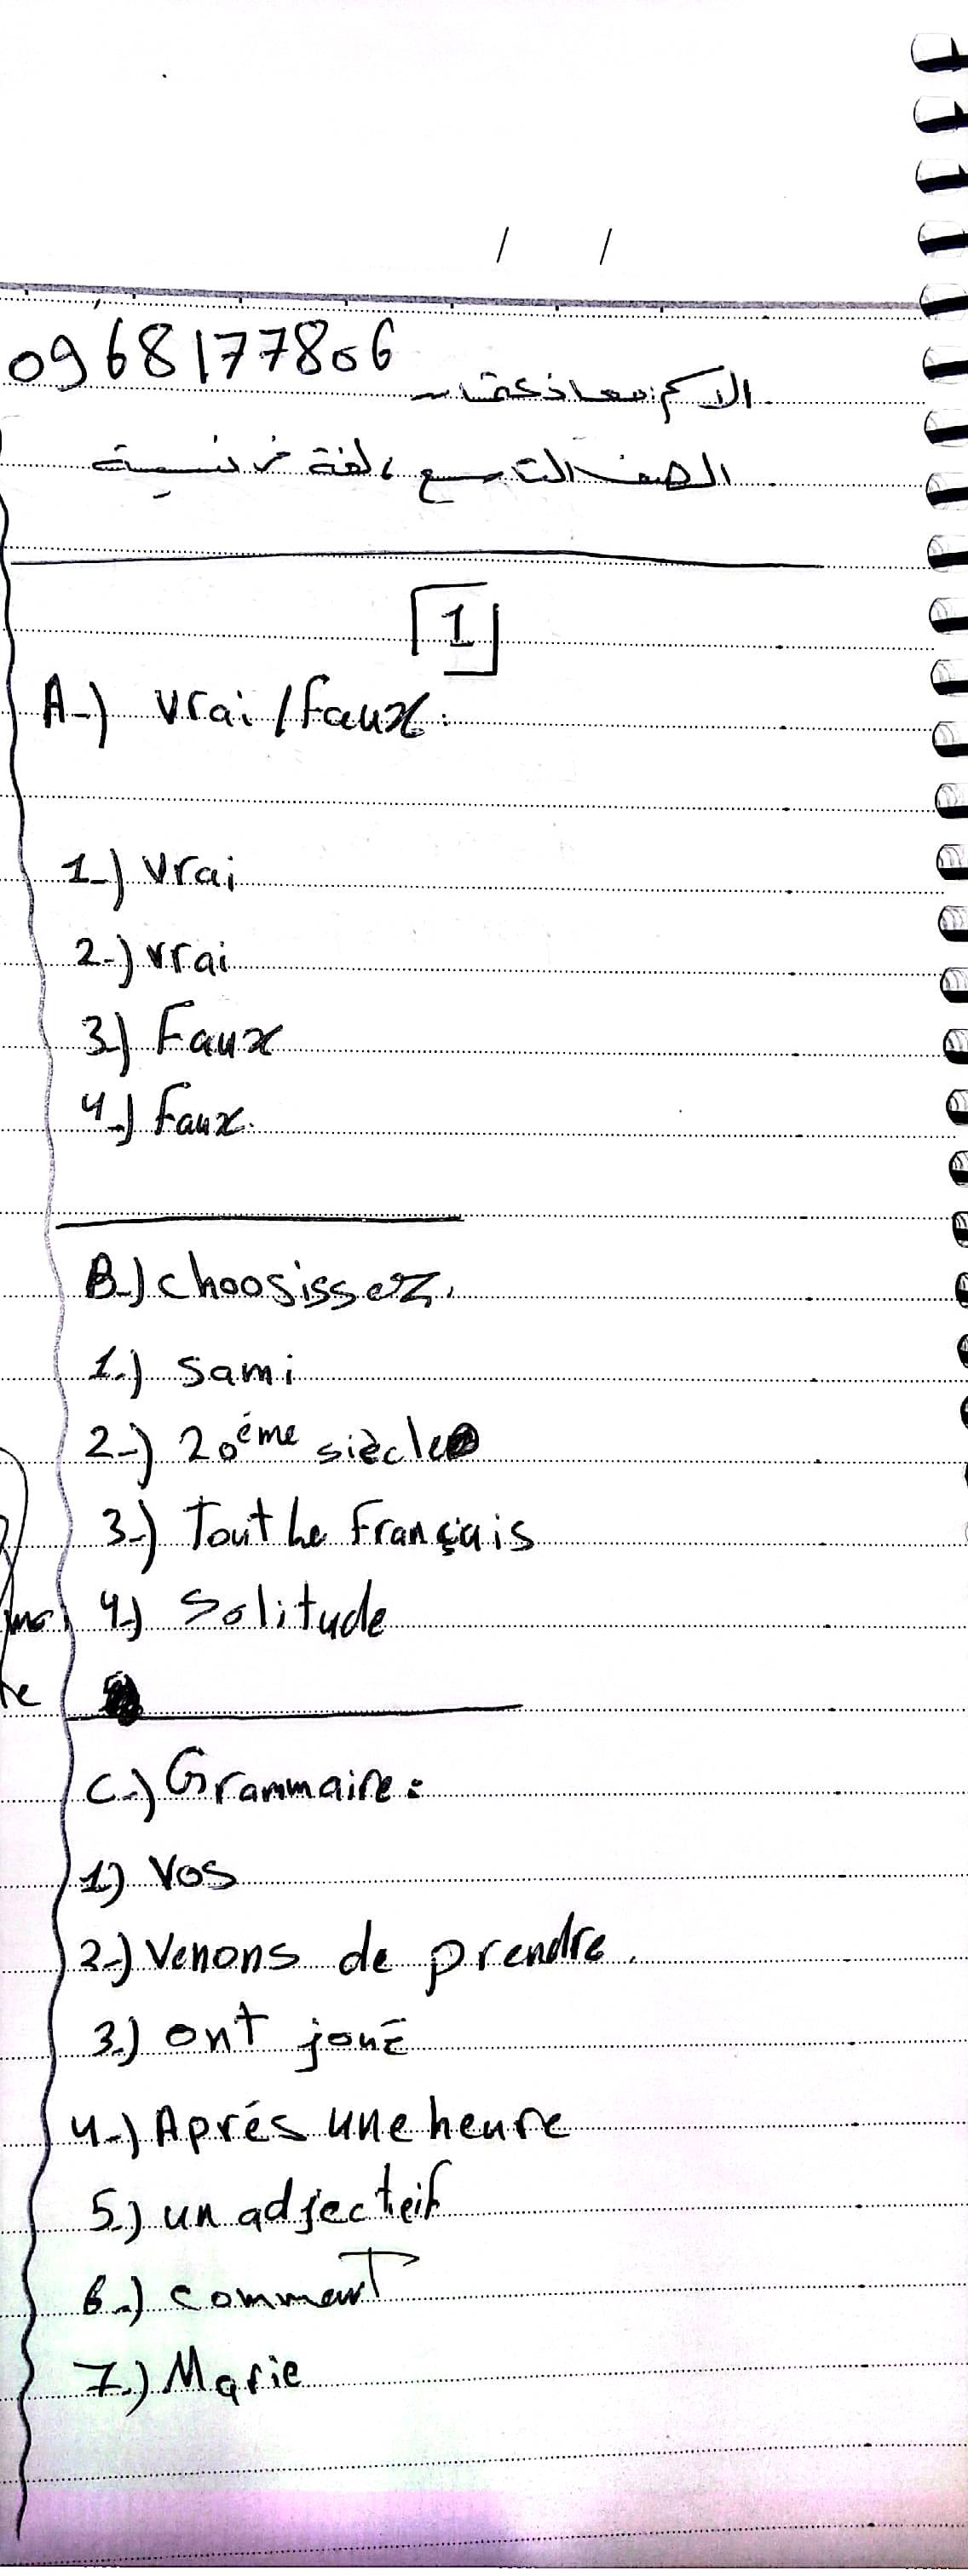 / /
0968177806
الاسم: معاذ
الصف التاسع لغة فرنسية
1
A-) Vrai / Faux:
1-) Vrai
2-) Vrai
3-) Faux
4-) Faux.
B-) choosissez.
1-) Sami
2-) 20éme siècle
3-) Tout Le Français
4-) Solitude
C-) Grammaire:
1-) Vos
2-) Venons de prendre.
3-) ont joué
4-) Aprés une heure
5-) un adjecteif
6-) comment
7-) Marie